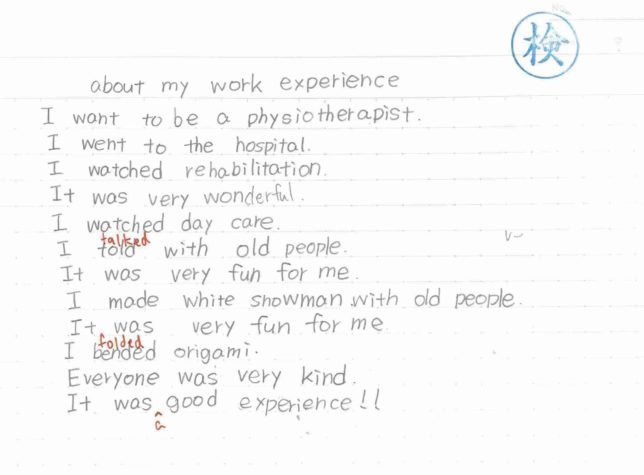 検
about my work experience
I want to be a physiotherapist.
I went to the hospital.
I watched rehabilitation.
It was very wonderful.
I watched day care.
talked
I told with old people.
It was very fun for me.
I made white snowman with old people.
It was very fun for me
folded
I bended origami.
Everyone was very kind.
It was good experience!!
a